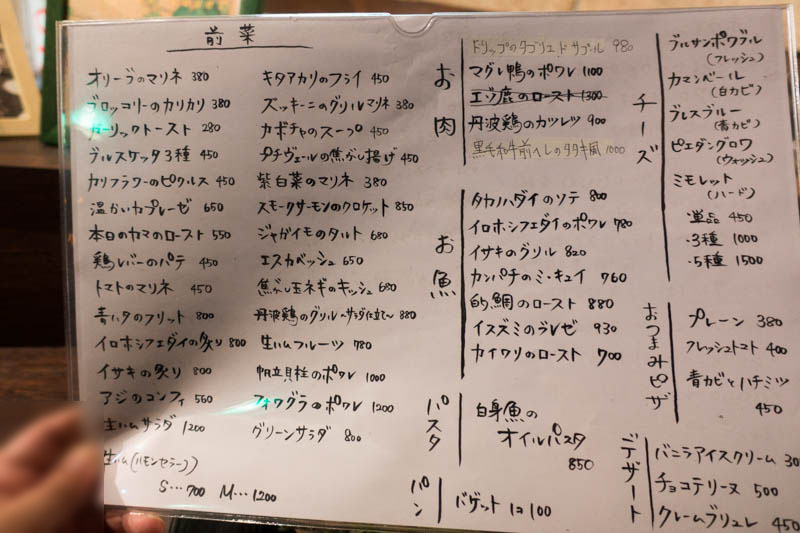 前菜
オリーブのマリネ 380
ブロッコリーのカリカリ 380
ガーリックトースト 280
ブルスケッタ3種 450
カリフラワーのピクルス 450
温かいカプレーゼ 650
本日のカマのロースト 550
鶏レバーのパテ 450
トマトのマリネ 450
青ハタのフリット 800
イロホシフエダイの炙り 800
イサキの炙り 800
アジのコンフィ 560
生ハムサラダ 1200
生ハム(ハモンセラーノ)
S…700 M…1200
キタアカリのフライ 450
ズッキーニのグリルマリネ 380
カボチャのスープ 450
プチヴェールの焦がし揚げ 450
紫白菜のマリネ 380
スモークサーモンのクロケット 850
ジャガイモのタルト 680
エスカベッシュ 650
焦がし玉ネギのキッシュ 680
丹波鶏のグリル〜サラダ仕立て〜 880
生ハムフルーツ 780
帆立貝柱のポワレ 1000
フォワグラのポワレ 1200
グリーンサラダ 800
お肉
980
マグレ鴨のポワレ 1100
エゾ鹿のロースト 1300
丹波鶏のカツレツ 900
黒毛和牛前ベレのタタキ風 1000
お魚
タカノハダイのソテ 800
イロホシフエダイのポワレ 780
イサキのグリル 820
カンパチのミ・キュイ 760
的鯛のロースト 880
イスズミのブレゼ 930
カイワリのロースト 700
パスタ
白身魚の
オイルパスタ
850
パン
バゲット 1コ100
チーズ
ブルサンポワブル
(フレッシュ)
カマンベール
(白カビ)
ブレスブルー
(青カビ)
ピエダングロワ
(ウォッシュ)
ミモレット
(ハード)
・単品 450
・3種 1000
・5種 1500
おつまみピザ
プレーン 380
フレッシュトマト 400
青カビとハチミツ
450
デザート
バニラアイスクリーム 30
チョコテリーヌ 500
クレームブリュレ 450